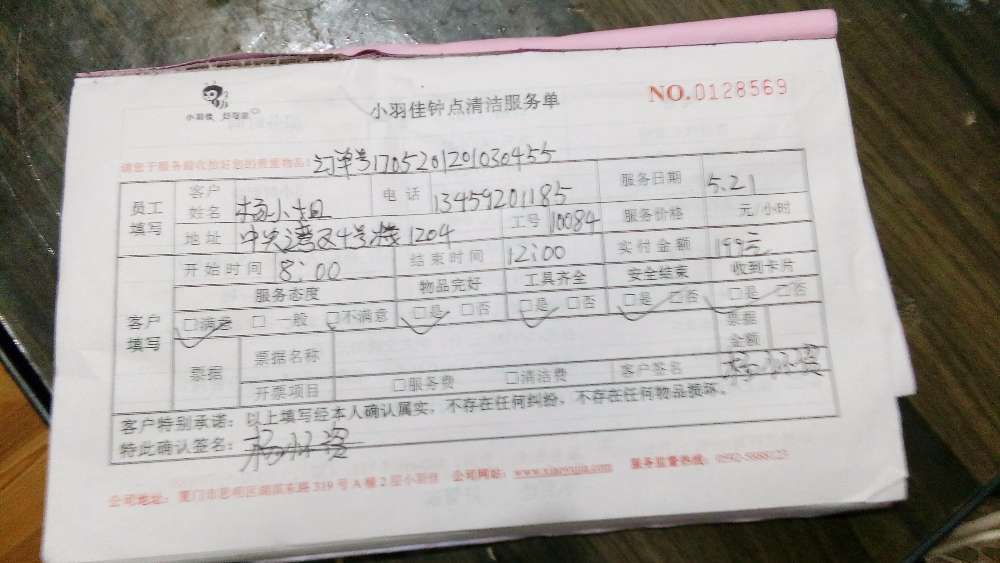 小羽佳 好帮家
小羽佳钟点清洁服务单
NO.0128569
请您于服务前收捡好您的贵重物品! 订单号1705201201030455
员工填写 客户姓名 杨小姐 电话 13459201185 服务日期 5.21
地址 中央湾区4号楼1204 工号 10084 服务价格 元/小时
开始时间 8:00 结束时间 12:00 实付金额 199元
客户填写 服务态度 物品完好 工具齐全 安全结束 收到卡片
□满意 □一般 □不满意 □是 □否 □是 □否 □是 □否 □是 □否
票据 票据名称 票据金额
开票项目 □服务费 □清洁费 客户签名
客户特别承诺:以上填写经本人确认属实,不存在任何纠纷,不存在任何物品损坏。
特此确认签名:
公司地址:厦门市思明区湖滨东路319号A幢2层小羽佳 公司网站:www.xiaoyujia.com 服务监督热线:0592-5888123